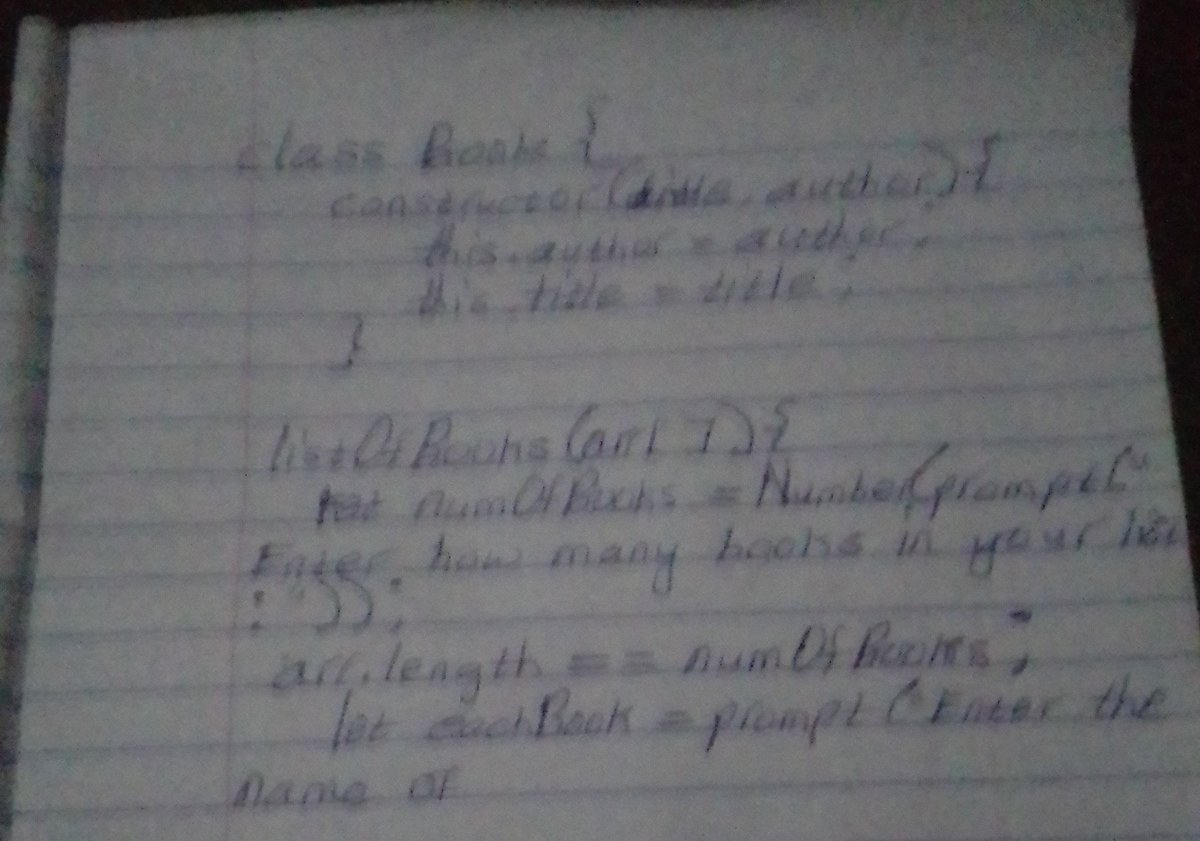 class Book {
constructor(title, author) {
this.author = author;
this.title = title;
}
listOfBooks(arr[ ]) {
let numOfBooks = Number(prompt("
Enter how many books in your list
: "));
arr.length == numOfBooks;
let eachBook = prompt("Enter the
name of